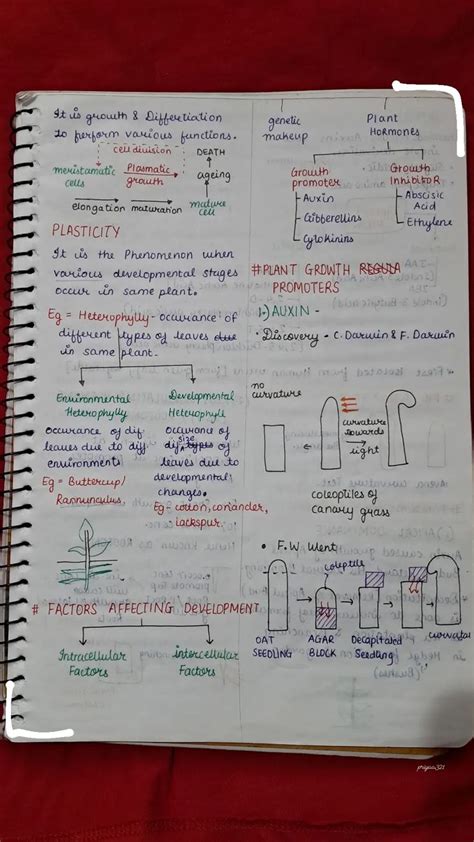 It is growth & Differtiation
to perform various functions.
cell division
meristamatic cells
Plasmatic growth
DEATH
ageing
mature cell
elongation maturation
PLASTICITY
It is the Phenomenon when
various developmental stages
occur in same plant.
Eg = Heterophylly - occurance of
different types of leaves due
in same plant.
Environmental
Heterophylly
occurance of dif.
leaves due to diff
environment
Eg = Buttercup/
Rannunculus.
Developmental
Heterophyll
occurance of
size
dif. types of
leaves due to
developmental
changes.
Eg = cotton, coriander,
larkspur.
# FACTORS AFFECTING DEVELOPMENT
Intracellular
Factors
intercellular
Factors
genetic
makeup
Plant
HORMONES
Growth
promoter
Auxin
Gibberellins
Cytokinins
Growth
InhibitoR
Abscisic
Acid
Ethylene
# PLANT GROWTH REGULA
PROMOTERS
1.) AUXIN -
• Discovery - C. Darwin & F. Darwin
no
curvature
curvature
towards
light
coleoptiles of
canary grass
• F.W. Went
OAT
SEEDLING
AGAR
BLOCK
Decapitated
Seedling